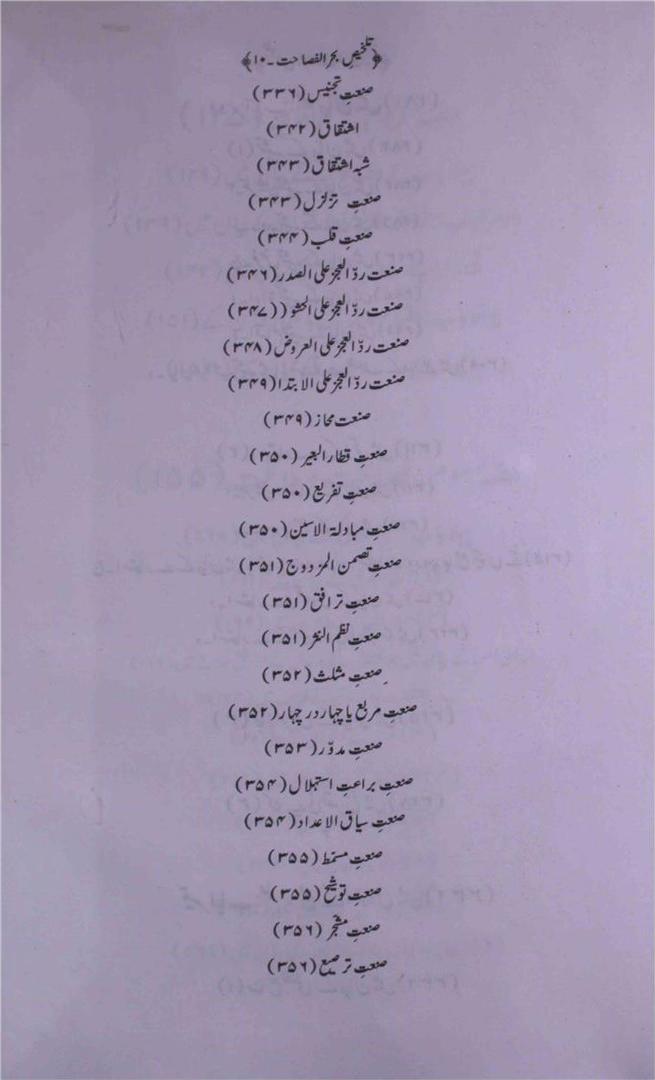 ﴿تلخیص بحر الفصاحت ۔ ۱۰﴾
صنعتِ تجنیس (۳۳۶)
اشتقاق (۳۴۲)
شبہ اشتقاق (۳۴۳)
صنعتِ تزلزل (۳۴۳)
صنعتِ قلب (۳۴۴)
صنعت ردّ العجز علی الصدر (۳۴۶)
صنعت ردّ العجز علی الحشو ((۳۴۷)
صنعت ردّ العجز علی العروض (۳۴۸)
صنعت ردّ العجز علی الابتدا (۳۴۹)
صنعت محاز (۳۴۹)
صنعتِ قطار البعیر (۳۵۰)
صنعتِ تفریع (۳۵۰)
صنعتِ مبادلۃ الاسین (۳۵۰)
صنعتِ تضمن المزدوج (۳۵۱)
صنعتِ ترافق (۳۵۱)
صنعتِ نظم النثر (۳۵۱)
صنعتِ مثلث (۳۵۲)
صنعتِ مربع یا چہار در چہار (۳۵۲)
صنعتِ مدوّر (۳۵۳)
صنعتِ براعتِ استہلال (۳۵۴)
صنعتِ سیاق الاعداد (۳۵۴)
صنعتِ مسمّط (۳۵۵)
صنعتِ توشیح (۳۵۵)
صنعتِ مشجّر (۳۵۶)
صنعتِ ترصیع (۳۵۶)